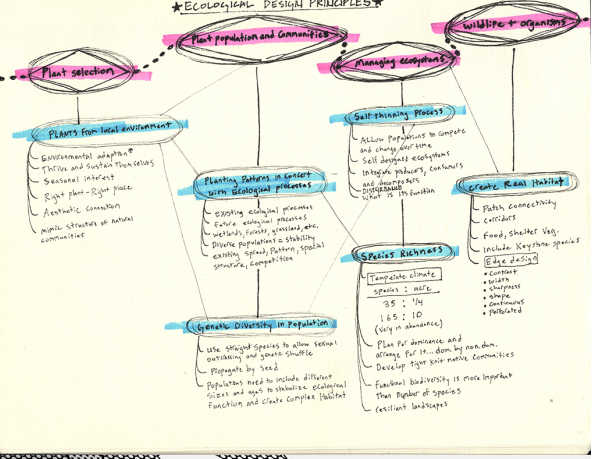 ★ECOLOGICAL DESIGN PRINCIPLES★
Plant selection
Plant population and communities
Managing ecosystems
Wildlife + organisms
PLANTS from local environment
Environmental adaption
Thrive and Sustain Themselves
Seasonal interest
Right plant - Right place
Aesthetic Connection
Mimic structure of natural
communities
Planting Patterns in Concert
with Ecological processes
existing ecological processes
future ecological processes
Wetlands, Forests, grassland, etc.
Diverse populations = stability
existing spread, Pattern, spacial
structure, Competition
Genetic Diversity in Population
Use straight species to allow sexual
outcrossing and genetic shuffle
Propogate by seed
Populations need to include different
sizes and ages to stabalize ecological
function and create complex Habitat
Self thinning Process
Allow Populations to compete
and change over time
Self designed ecosystems
Integrate producers, consumers
and decomposers
DISTURBANCE
what is its function
Species Richness
Temperate climate
Species : acre
35 : 1/4
165 : 10
(Vary in abundance)
Plan for dominance and
arrange for it... dom. by non.dom.
Develop tight knit native Communities
Functional biodiversity is more important
than number of species
resiliant landscapes
Create Real Habitat
Patch Connectivity
Corridors
Food, Shelter Veg.
Include Keystone species
Edge design
• contrast
• width
• sharpness
• shape
• continuous
• Perforated